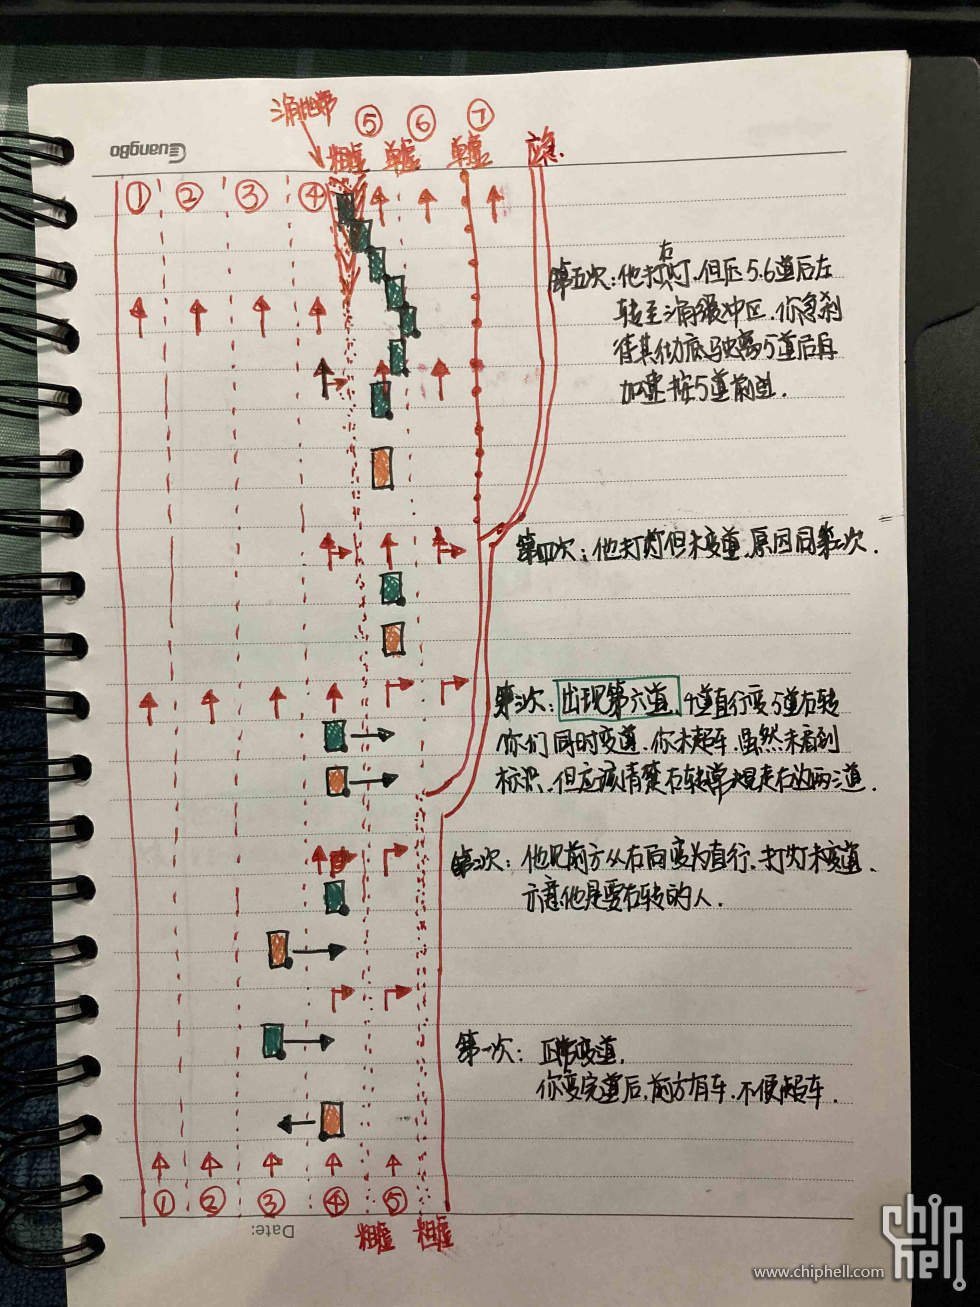 三角地带
⑤ ⑥ ⑦
粗虚 单虚 单虚 应急.
GuangBo
① ② ③ ④
第五次：他打右灯.但压5.6道后左
转至三角缓冲区.你急刹
待其彻底驶离5道后再
加速按5道前进.
第四次：他打灯但未变道.原因同第二次.
第三次：出现第六道、4道直行变5道右转
你们同时变道.你未超车.虽然未看到
标识.但应该清楚右转常规走右边两三道.
第二次：他见前方从右向变为直行.打灯未变道.
示意他是要右转的人.
第一次：正常变道.
你变完道后.前方有车.不便超车.
① ② ③ ④ ⑤
Date:
粗虚 粗虚
chip
hell
www.chiphell.com